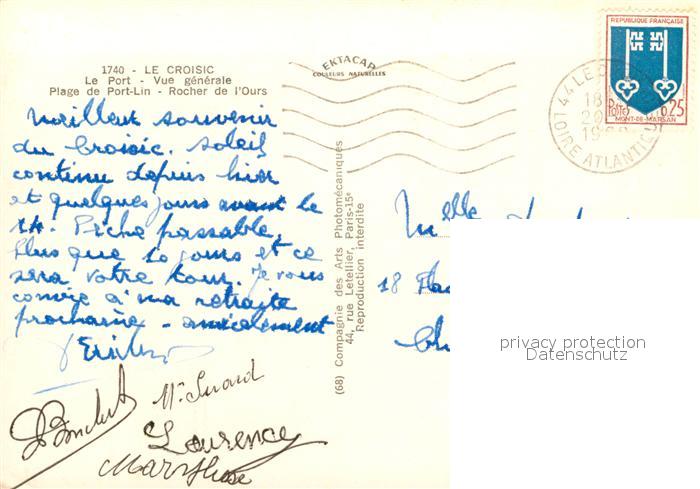 1740 - LE CROISIC
Le Port - Vue générale
Plage de Port-Lin - Rocher de l'Ours
EKTACAP
COULEURS NATURELLES
RÉPUBLIQUE FRANÇAISE
POSTES
0,25
MONT-DE-MARSAN
44 LE
18
LOIRE ATLANTIQUE
Meilleur souvenir
du Croisic. Soleil
continu depuis hier
et quelques jours avant le
14. Pêche passable.
Plus que 10 jours et ce
sera votre tour. Je vous
convie à ma retraite
prochaine - amicalement
Laurence
(68) Compagnie des Arts Photomécaniques
44, rue Letellier, Paris-15e
Reproduction interdite
Melle
18
privacy protection
Datenschutz